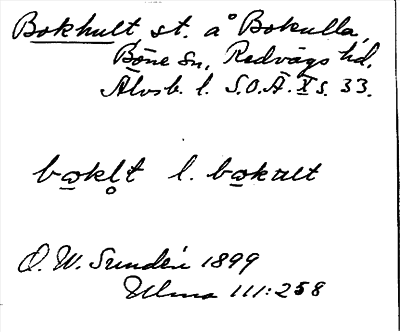 Bokhult st. å Bokulla,
Böne sn, Redvägs hd.
Älvsb. l. S.O.Ä. X s. 33.
bokl̥t l. bokult
O. W. Sundén 1899
Ulma 111:258